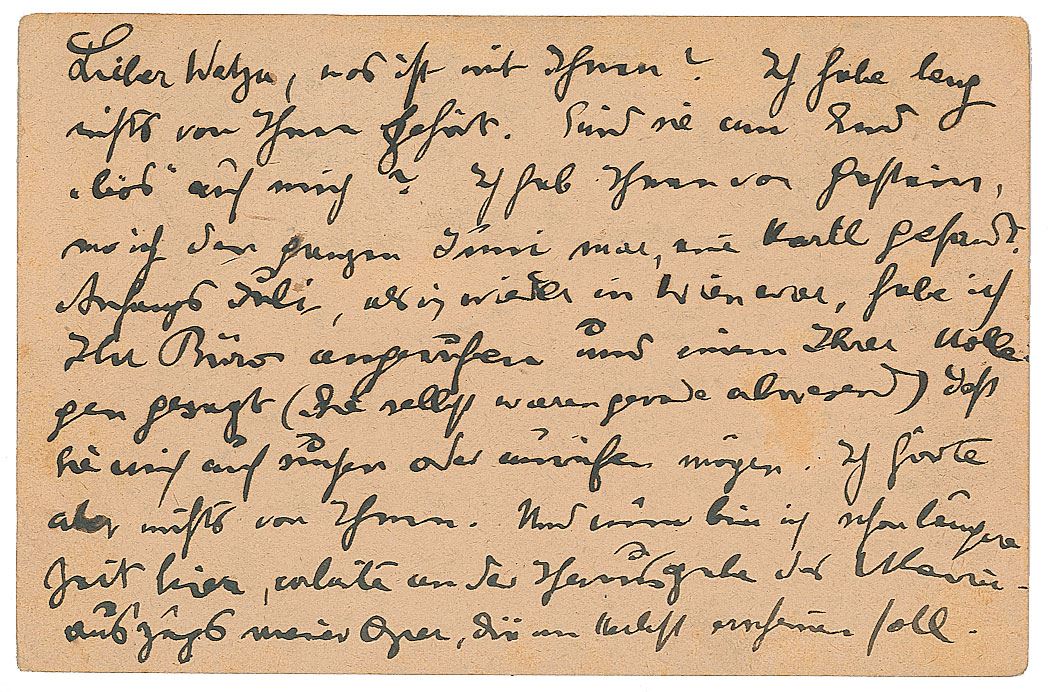 Lieber Watzn, was ist mit Ihnen? Ich habe lang
nichts von Ihnen gehört. Sind sie am End
"bös" auf mich? Ich hab Ihnen von Gastein,
wo ich den ganzen Juni war, eine Karte gesandt.
Anfangs Juli, als ich wieder in Wien war, habe ich
Ihr Büro angerufen und einem Ihrer Kolle-
gen gesagt (Sie selbst waren gerade abwesend) daß
Sie mich aufsuchen oder anrufen mögen. Ich hörte
aber nichts von Ihnen. Und nun bin ich schon längere
Zeit hier, arbeite an der Herausgabe des Klavier-
auszugs meiner Oper, die im Herbst erscheinen soll.